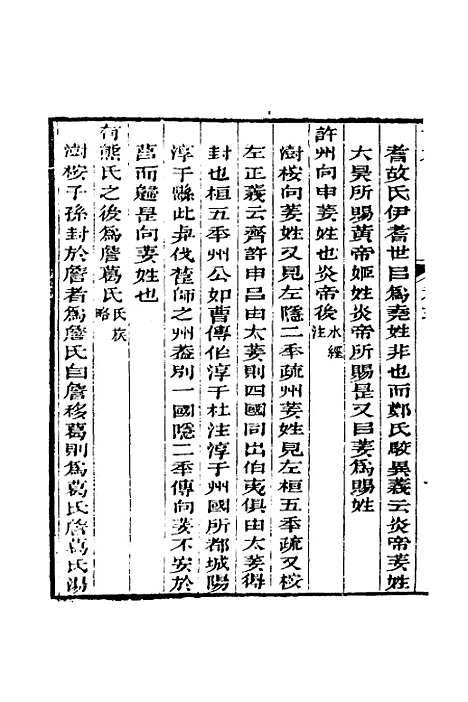 耆故氏伊耆世曰為堯姓非也而鄭氏駁異義云炎帝姜姓
大昊所賜黃帝姬姓炎帝所賜是又曰姜為賜姓
許州向申姜姓也炎帝後水經注
澍桉向姜姓又見左隱二年疏州姜姓見左桓五年疏又桉
左正義云齊許申呂由太姜則四國同出伯夷俱由太姜得
封也桓五年州公如曹傳作淳于杜注淳于州國所都城陽
淳于縣此與伐楚師之州葢別一國隱二年傳向姜不安於
莒而歸是向姜姓也
有熊氏之後為詹葛氏氏族略
澍桉子孫封於詹者為詹氏自詹移葛則為葛氏詹葛氏湯